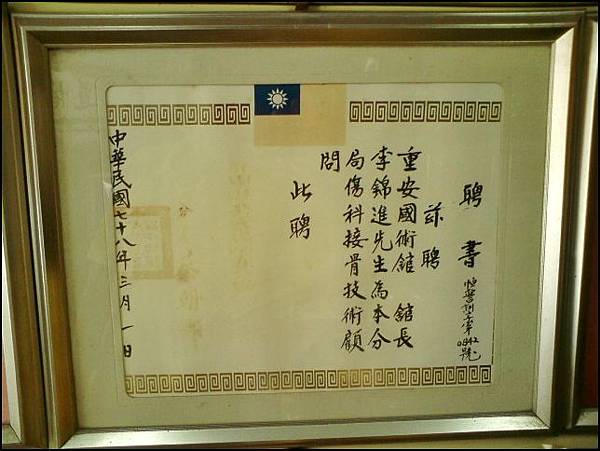 聘書
字第0842號
茲聘
重安國術館 館長
李錦進先生為本分
局傷科接骨技術顧
問
此聘
中華民國七十八年三月一日